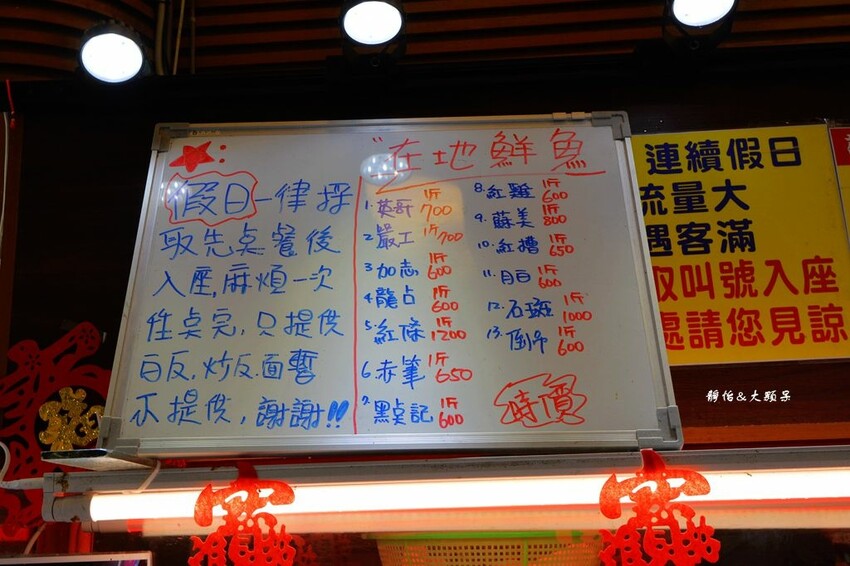 假日一律採
取先奌餐後
入座,麻煩一次
性奌完,只提供
白反.炒反.面暫
不提供,謝謝!!
在地鮮魚
1. 英哥 1斤 700
2. 嚴工 1斤 700
3. 加志 1斤 600
4. 龍占 1斤 600
5. 紅條 1斤 1200
6. 赤筆 1斤 650
7. 黑奌記 1斤 600
8. 紅雞 1斤 600
9. 蘇美 1斤 800
10. 紅槽 1斤 650
11. 月白 1斤 600
12. 石斑 1斤 1000
13. 倒吊 1斤 600
時價
連續假日
流量大
遇客滿
取叫號入座
處請您見諒
靜怡&大顆呆